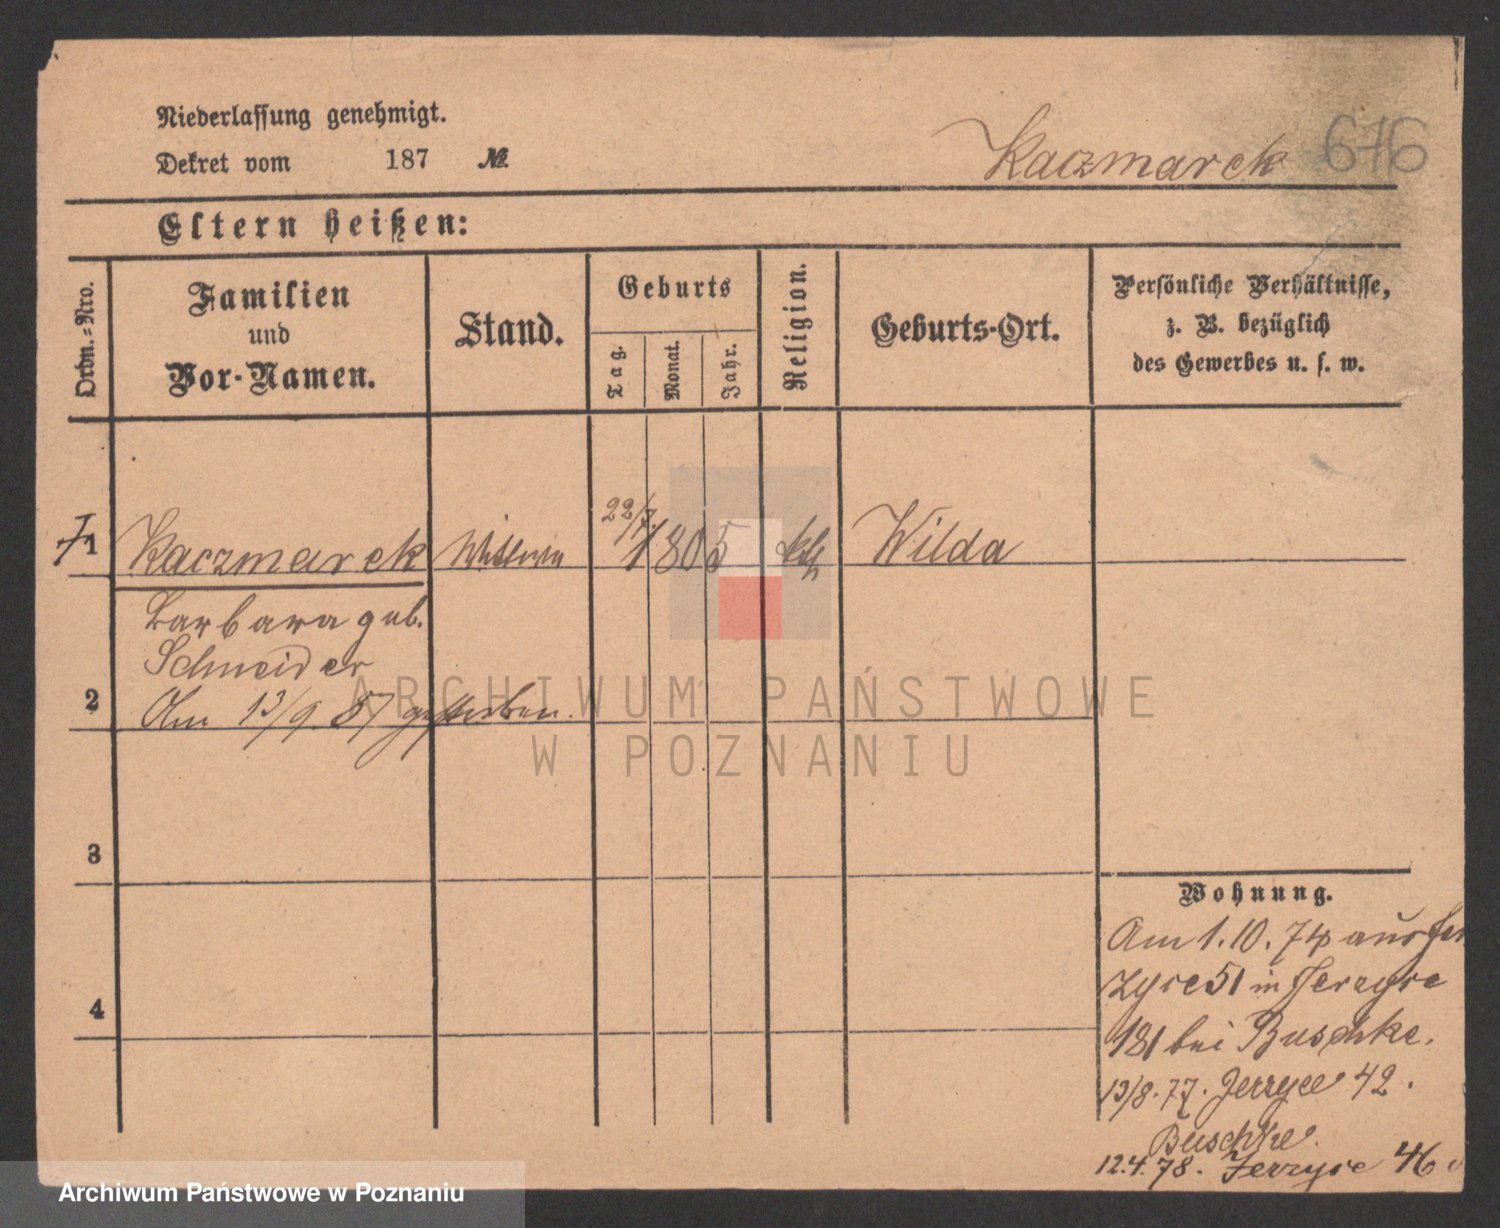 Niederlassung genehmigt.
Dekret vom 187 №
Kaczmarek 676
Eltern heißen:
Ordn.-Nro.
Familien
und
Vor-Namen.
Stand.
Geburts
Tag.
Monat.
Jahr.
Religion.
Geburts-Ort.
Persönliche Verhältnisse,
z. B. bezüglich
des Gewerbes u. s. w.
1 Kaczmarek Wittwe 22/7. 1805 kth Wilda
Barbara geb.
Schneider
2 Am 13/9. 87 gestorben.
3
4
Wohnung.
Am 1. 10. 74 aus Jer
zyce 51 in Jerzyce
181 bei Buschke.
13/8. 77. Jerzyce 42.
Buschke.
12.4.78. Jerzyce 46
ARCHIWUM PAŃSTWOWE
W POZNANIU
Archiwum Państwowe w Poznaniu